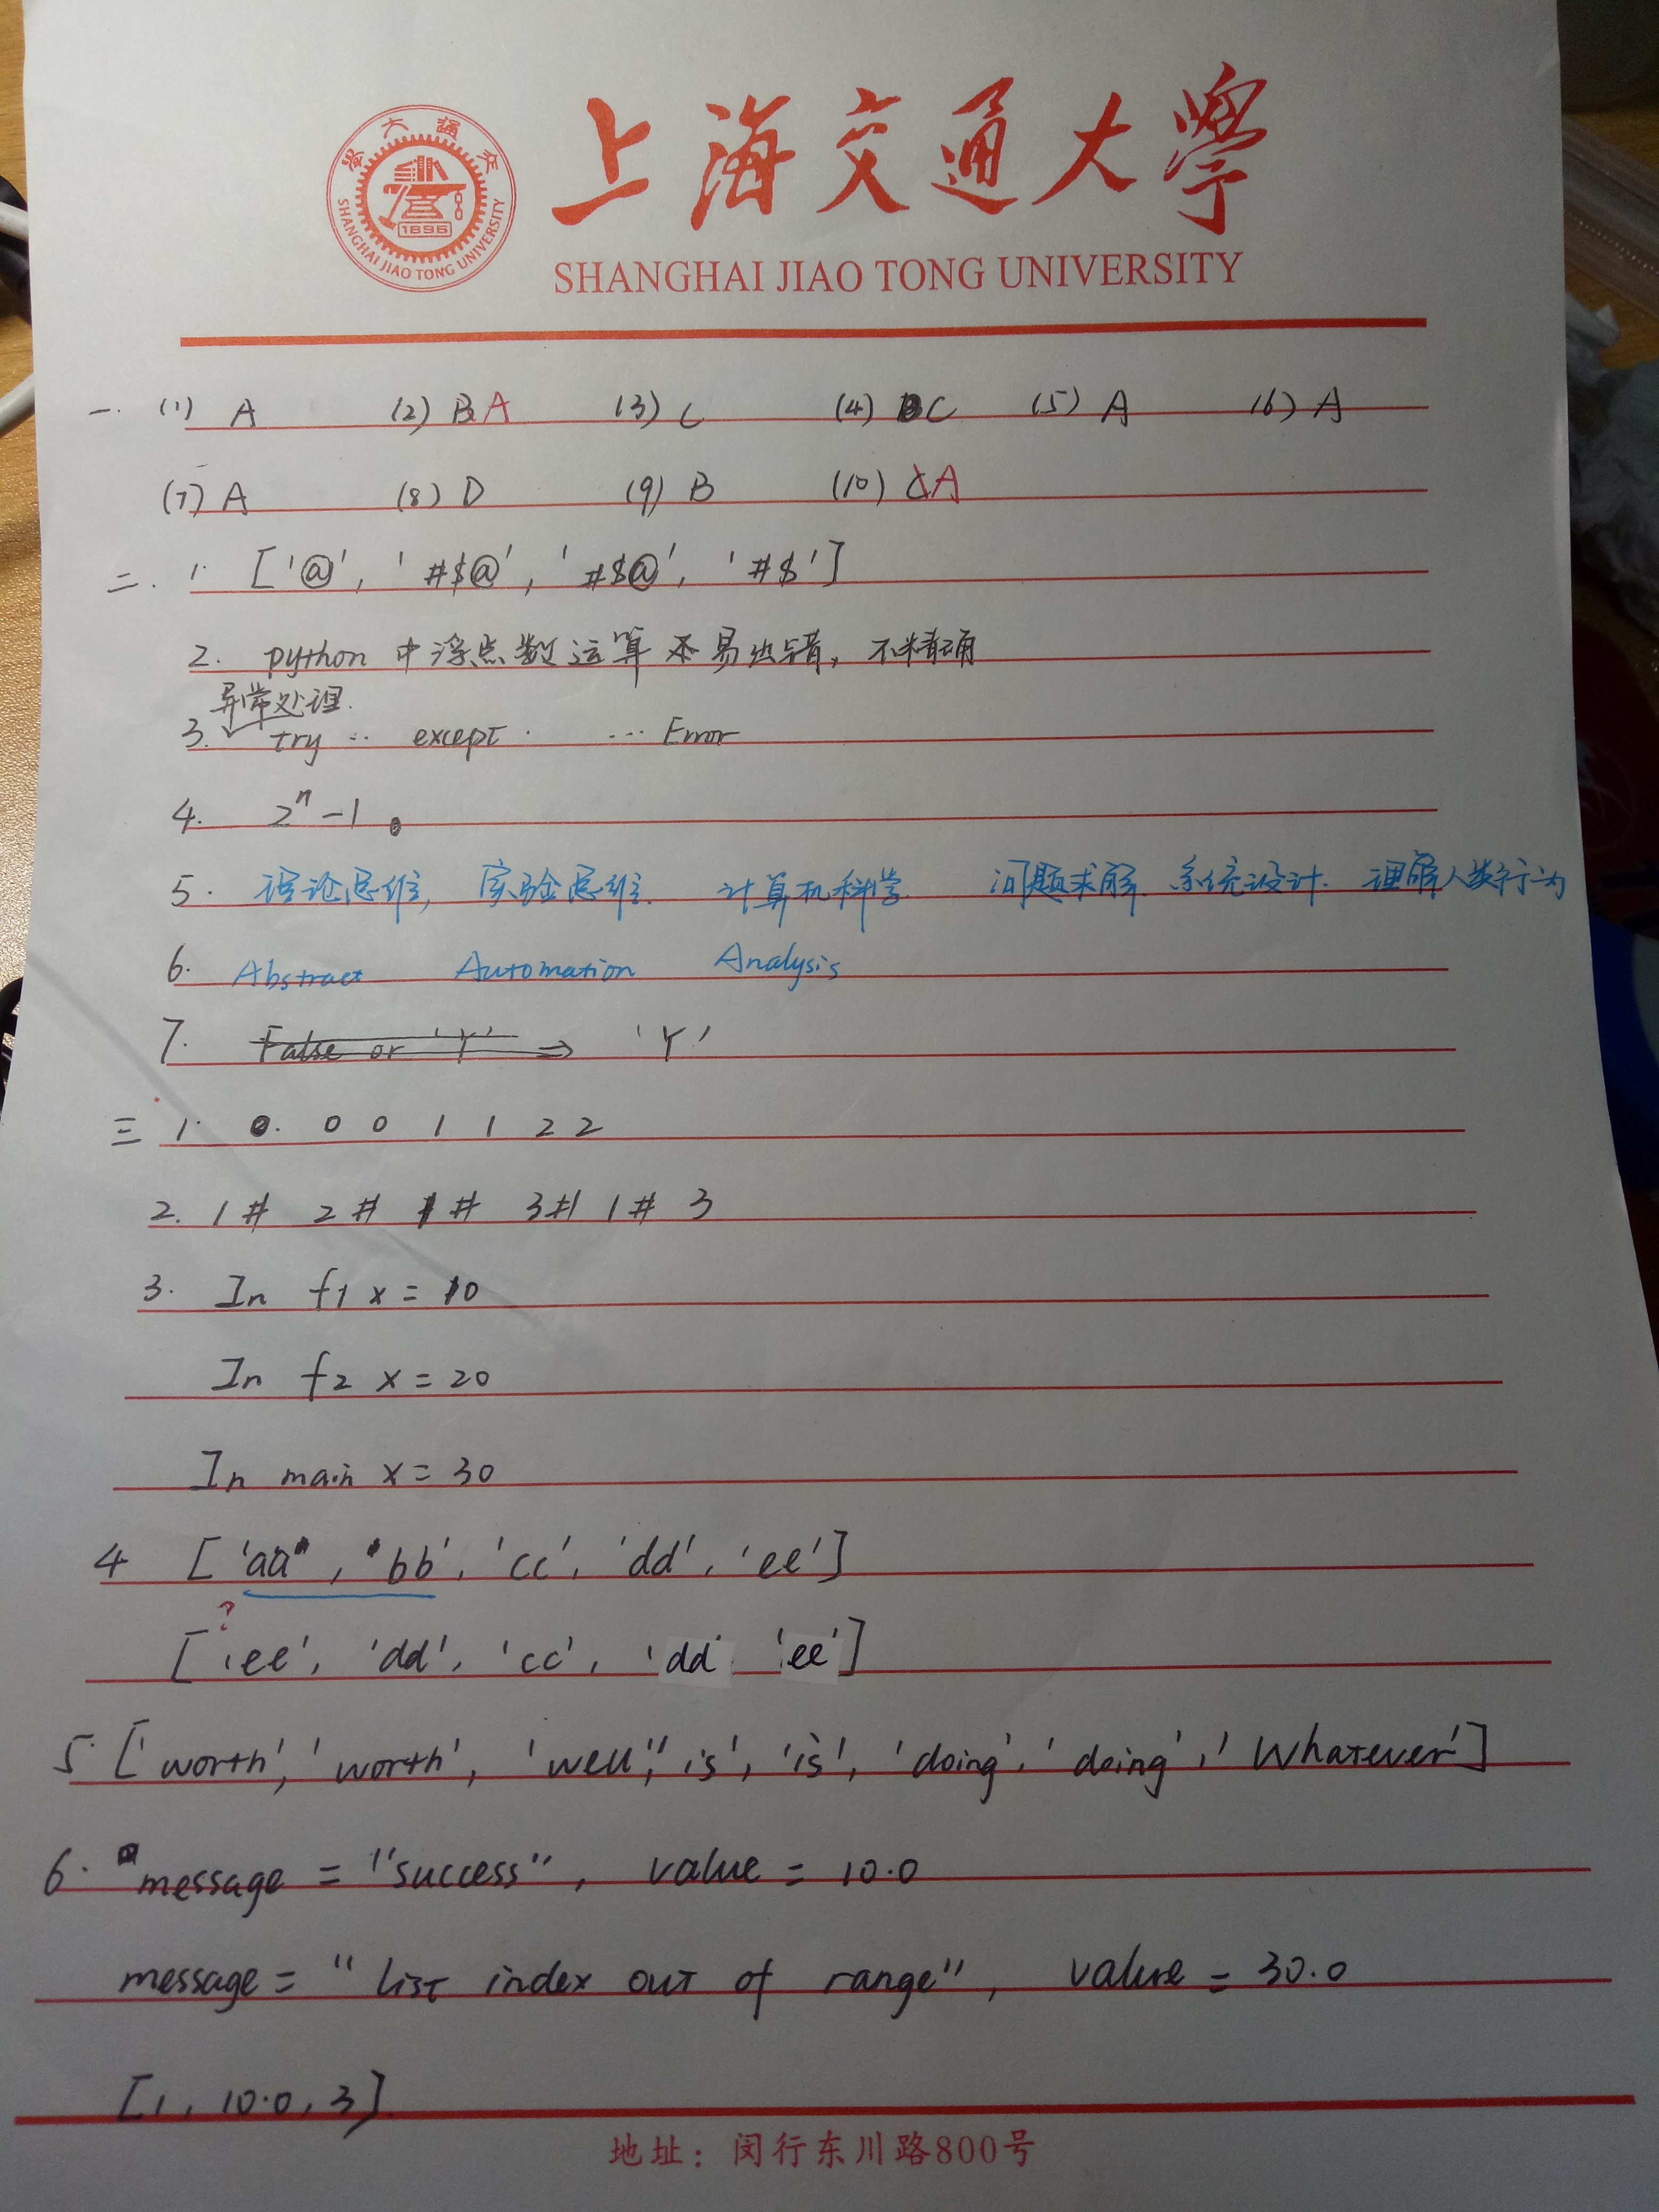 上海交通大學
SHANGHAI JIAO TONG UNIVERSITY
1896
SHANGHAI JIAO TONG UNIVERSITY
一. (1) A (2) B A (3) C (4) C (5) A (6) A
(7) A (8) D (9) B (10) A
二. 1. ['@', '#$@', '#$@', '#$']
2. python 中浮点数运算 易出错, 不精确
异常处理.
3. try ... except ... Error
4. 2ⁿ-1
5. 理论思维, 实验思维. 计算机科学. 问题求解. 系统设计. 理解人类行为
6. Abstract Automation Analysis
7. False or 'Y' ⇒ 'Y'
三 1. 0 0 1 1 2 2
2. 1# 2# 1# 3# 1# 3
3. In f1 x = 10
In f2 x = 20
In main x = 30
4 ['aa', 'bb', 'cc', 'dd', 'ee']
?
['ee', 'dd', 'cc', 'dd' 'ee']
5. ['worth', 'worth', 'well', 'is', 'is', 'doing', 'doing', 'Whatever']
6. message = "success", value = 10.0
message = "list index out of range", value = 30.0
[1, 10.0, 3].
地址: 闵行东川路800号